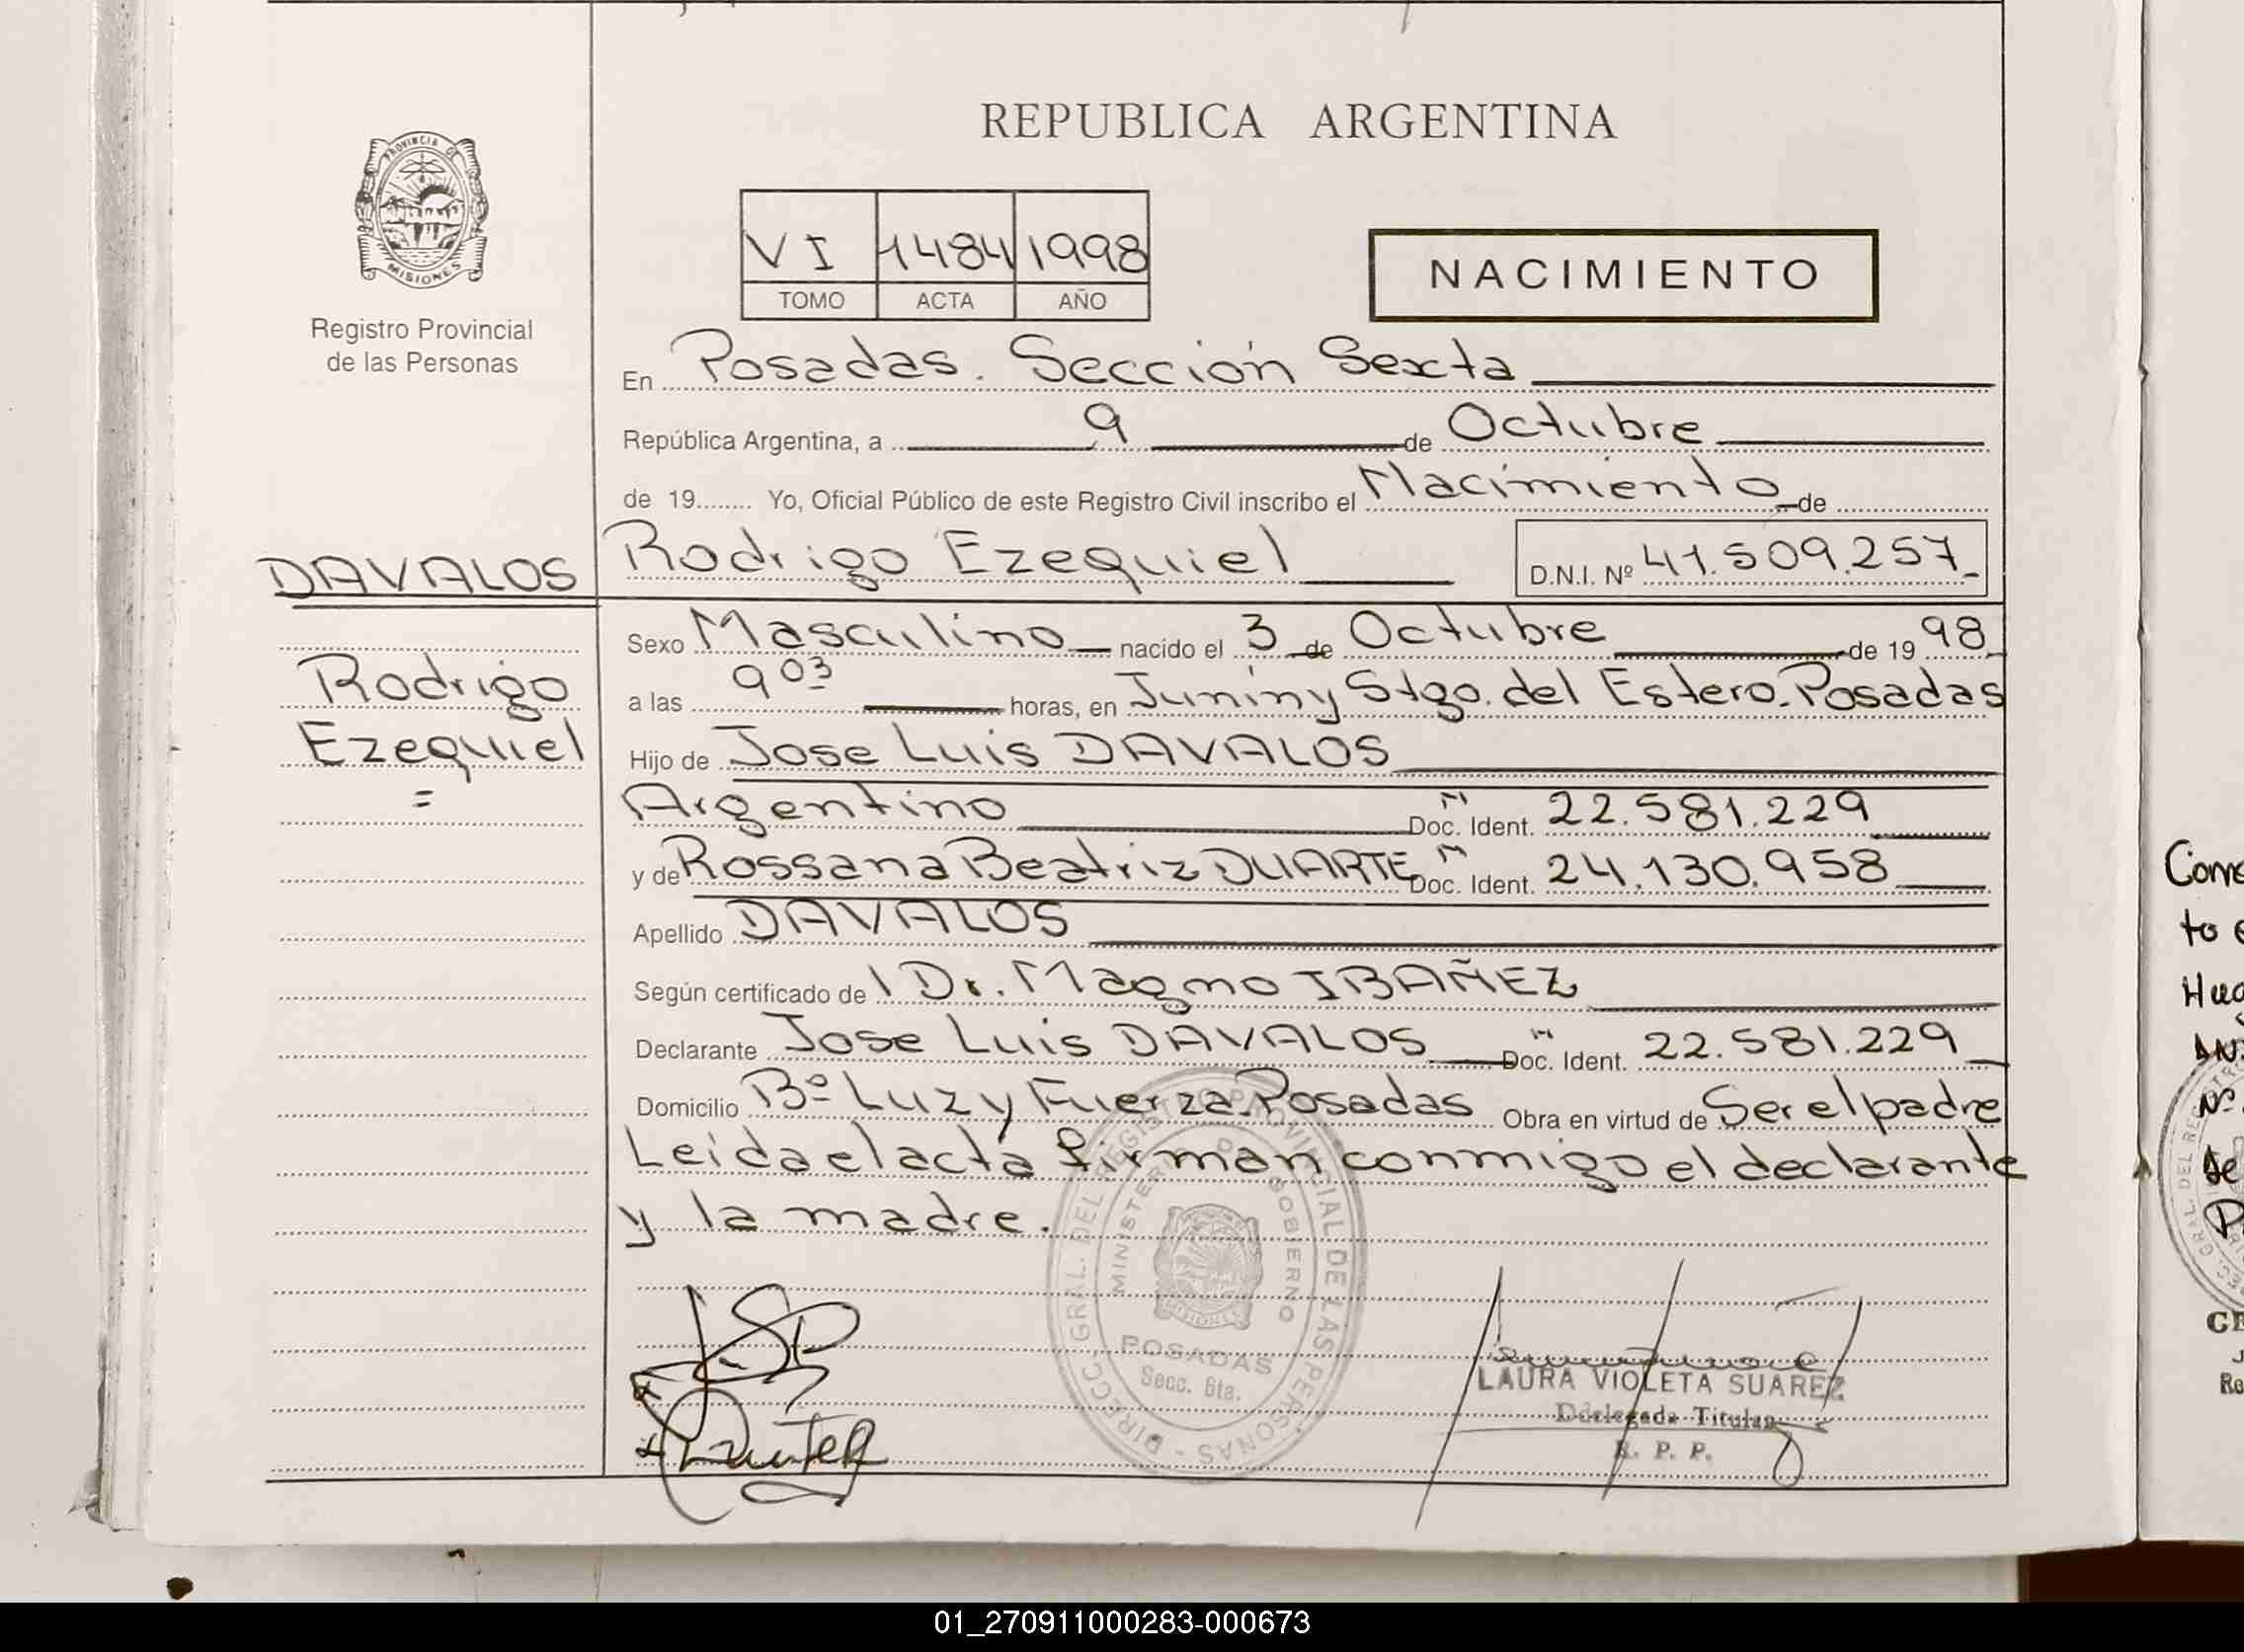 REPUBLICA ARGENTINA
PROVINCIA DE
MISIONES
Registro Provincial
de las Personas
VI 1484 1998
TOMO ACTA AÑO
NACIMIENTO
En Posadas. Sección Sexta
República Argentina, a 9 de Octubre
de 19........ Yo, Oficial Público de este Registro Civil inscribo el Nacimiento de
DAVALOS
Rodrigo Ezequiel D.N.I. Nº 41.509.257
Rodrigo
Ezequiel
Sexo Masculino nacido el 3 de Octubre de 19 98
a las 9 03 horas, en Junín y Stgo. del Estero. Posadas
Hijo de Jose Luis DAVALOS
Argentino Doc. Ident. M 22.581.229
y de Rossana Beatriz DUARTE Doc. Ident. M 24.130.958
Apellido DAVALOS
Según certificado del Dr. Magno IBAÑEZ
Declarante Jose Luis DAVALOS Doc. Ident. M 22.581.229
Domicilio Bº Luz y Fuerza. Posadas Obra en virtud de Ser el padre
Leída el acta firman conmigo el declarante
y la madre.
DIRECC. GRAL. DEL REGISTRO PROVINCIAL DE LAS PERSONAS
MINISTERIO DE GOBIERNO
MISIONES
POSADAS
Secc. 6ta.
LAURA VIOLETA SUAREZ
Ddelegada Titular
R. P. P.
to
GRAL. DEL
Nº
01_270911000283-000673